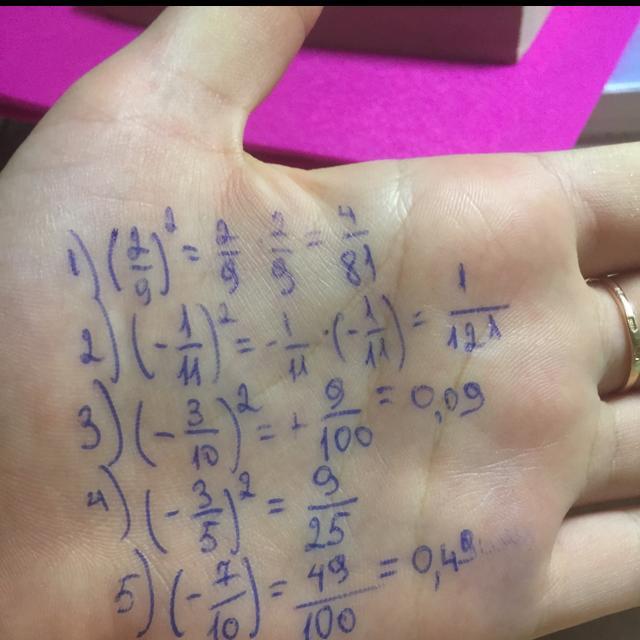 1) (2/9)² = 2/9 · 2/9 = 4/81
2) (-1/11)² = -1/11 · (-1/11) = 1/121
3) (-3/10)² = + 9/100 = 0,09
4) (-3/5)² = 9/25
5) (-7/10) = 49/100 = 0,49